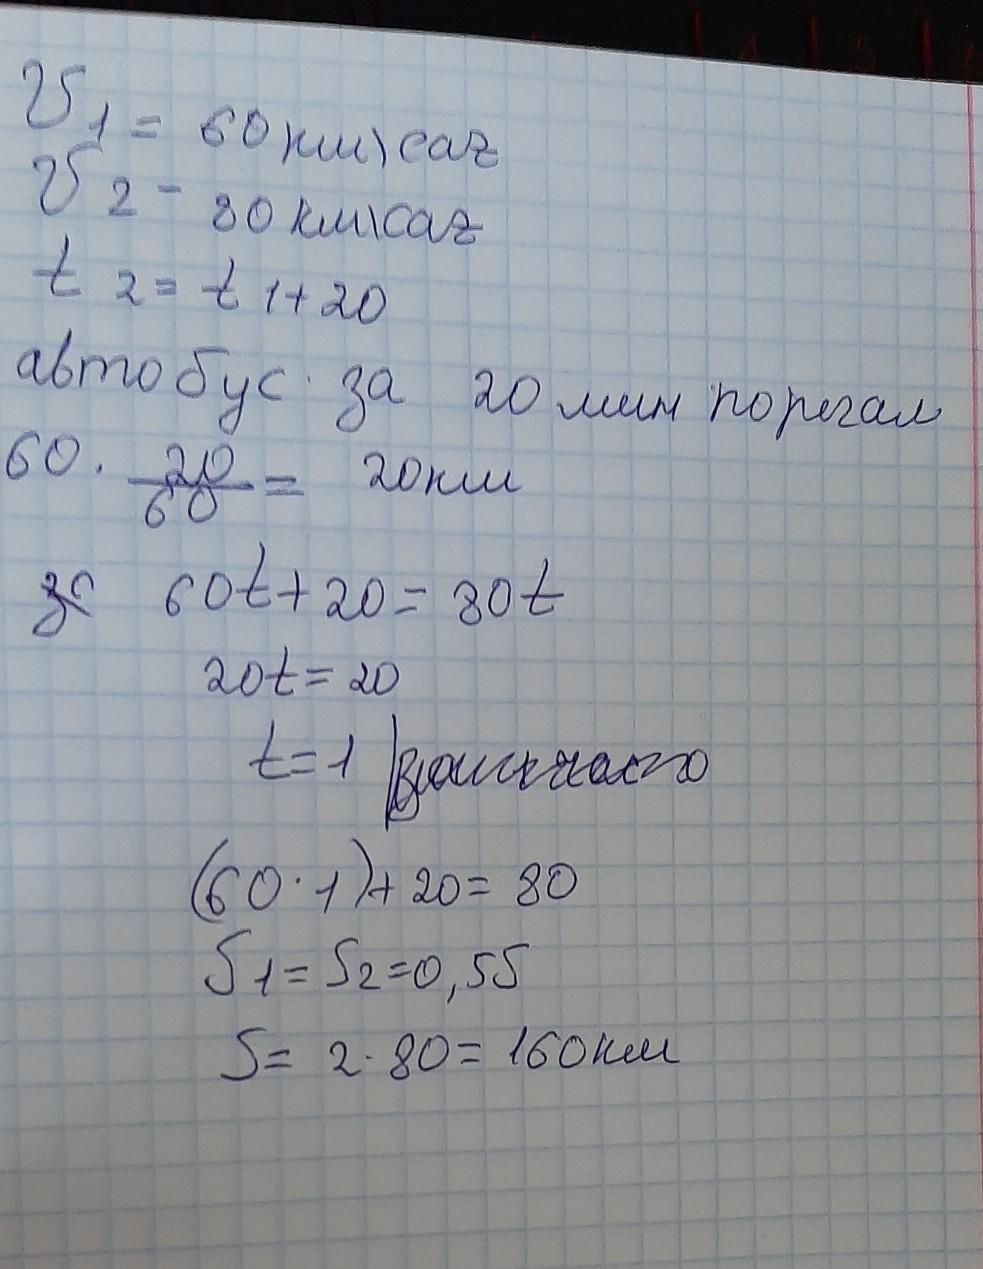 V1 = 60 км\саг
V2 - 80 км\саг
t 2 = t 1 + 20
автобус за 20 мин
60 · 20/60 = 20 км
60t + 20 = 80t
20t = 20
t = 1
(60 · 1) + 20 = 80
S1 = S2 = 0,5S
S = 2 · 80 = 160 км